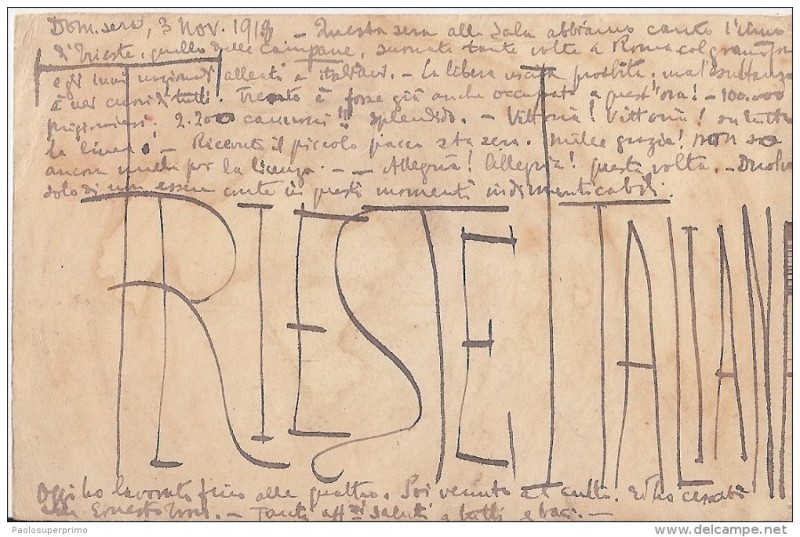 Dom. sera, 3 Nov. 1918 — Questa sera alla Sala abbiamo cantato l'inno
di Trieste, quello delle campane, suonato tante volte a Roma col gramofono
e gli inni nazionali alleati e italiani. — La libera uscita proibita, ma l'esultanza
è nei cuori di tutti. Trento è forse già anche occupata a quest'ora! — 100.000
prigionieri! 2.200 cannoni!! Splendido. — Vittoria! Vittoria! su tutta
la linea! — Ricevuto il piccolo pacco stasera. mille grazie! non so
ancora nulla per la licenza. — — Allegria! Allegria! questa volta. —
solo di non essere costì in questi momenti indimenticabili.
TRIESTE ITALIANA
Oggi ho lavorato fino alle quattro. Poi venuto al culto. Ed ho
— Tanti aff.zi saluti a tutti e baci. —
Paolosuperprimo
www.delcampe.net